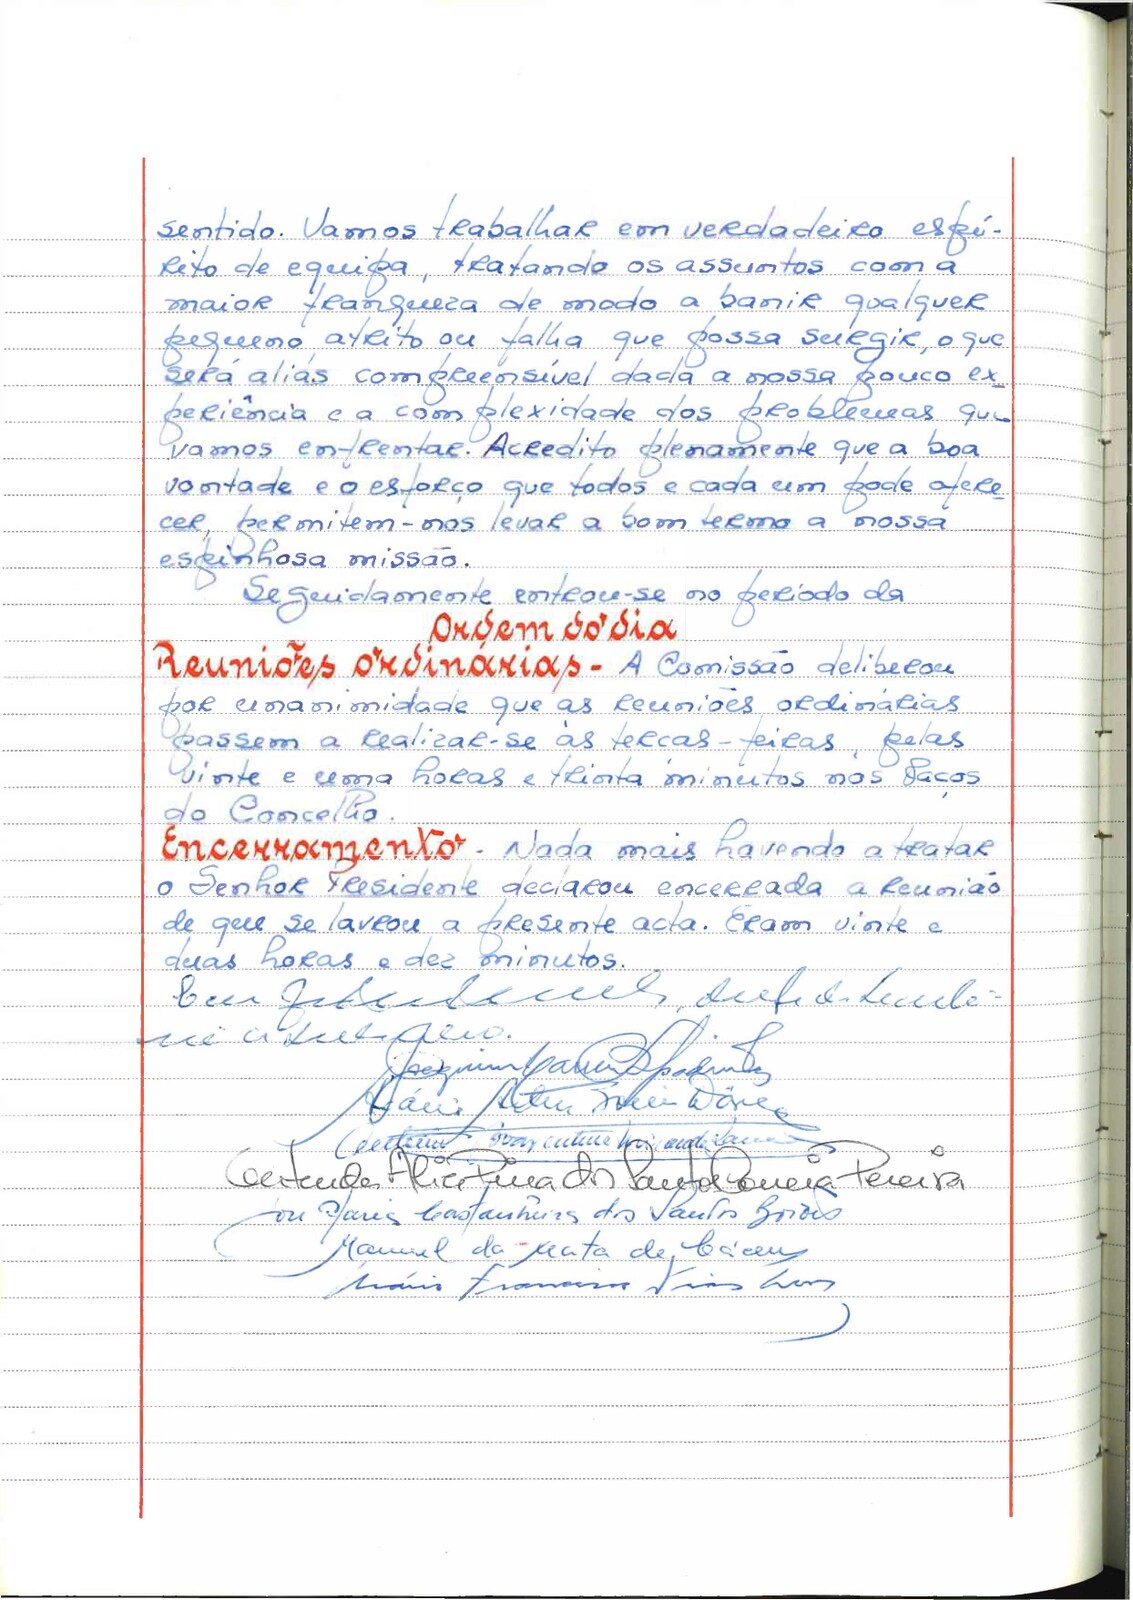 sentido. Vamos trabalhar em verdadeiro espí-
rito de equipa, tratando os assuntos com a
maior franqueza de modo a banir qualquer
pequeno atrito ou falha que possa surgir, o que
será aliás compreensível dada a nossa pouco ex_
periência e a complexidade dos problemas que
vamos enfrentar. Acredito plenamente que a boa
vontade e o esforço que todos e cada um pode ofere_
cer, permitem-nos levar a bom termo a nossa
espinhosa missão.
Seguidamente entrou-se no período da
Ordem do dia
Reuniões ordinárias - A Comissão deliberou
por unanimidade que as reuniões ordinárias
passem a realizar-se às terças-feiras, pelas
vinte e uma horas e trinta minutos nos Paços
do Concelho.
Encerramento - Nada mais havendo a tratar
o Senhor Presidente declarou encerrada a reunião
de que se lavrou a presente acta. Eram vinte e
duas horas e dez minutos.
Gertrudes Alice Pina dos Santos Correia Pereira
Maria Castanheira dos Santos
Manuel da Mata de Cáceres
Mário Francisco